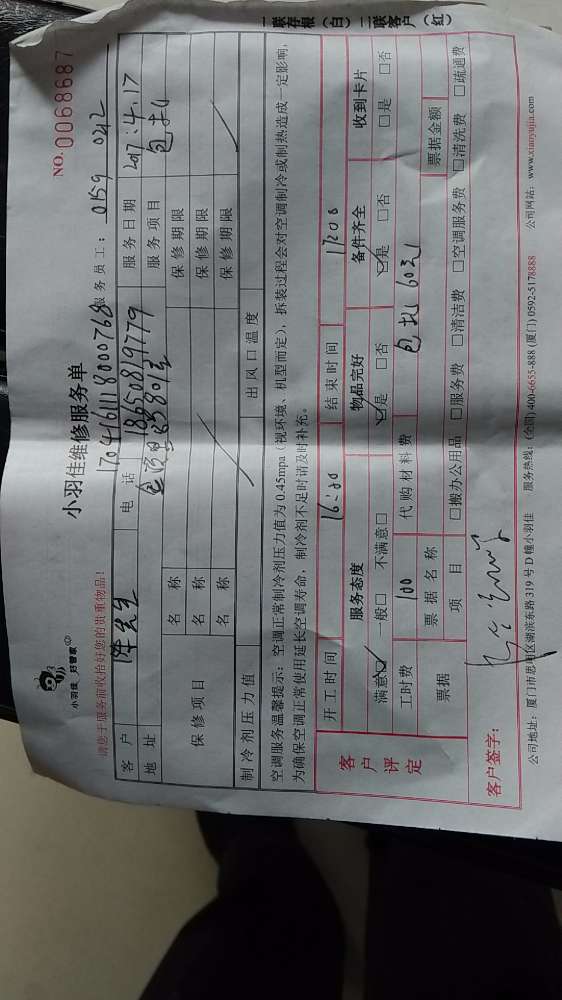 一联存根（白）二联客户（红）
小羽佳 好管家
小羽佳维修服务单
NO. 0068687
请您于服务前收拾好您的贵重物品！
1704161118000768 服务员工：0159 0212
客户 陈先生 电话 18650819779 服务日期 2017.4.17
地址 服务项目
保修项目 名称 保修期限
名称 保修期限
名称 保修期限
制冷剂压力值 出风口温度
空调服务温馨提示：空调正常制冷剂压力值为0.45mpa（视环境、机型而定），拆装过程会对空调制冷或制热造成一定影响，
为确保空调正常使用延长空调寿命，制冷剂不足时请及时补充。
客户评定 开工时间 16:00 结束时间
服务态度 物品完好 备件齐全 收到卡片
满意☑ 一般□ 不满意□ ☑是 □否 ☑是 □否 □是 □否
工时费 100 代购材料费
票据 票据名称 票据金额
项目 □搬办公用品 □服务费 □清洁费 □空调服务费 □清洗费 □疏通费
客户签字：
公司地址：厦门市思明区湖滨东路319号D幢小羽佳 服务热线：（全国）400-6655-888 （厦门）0592-5178888 公司网站：www.xiaoyujia.com